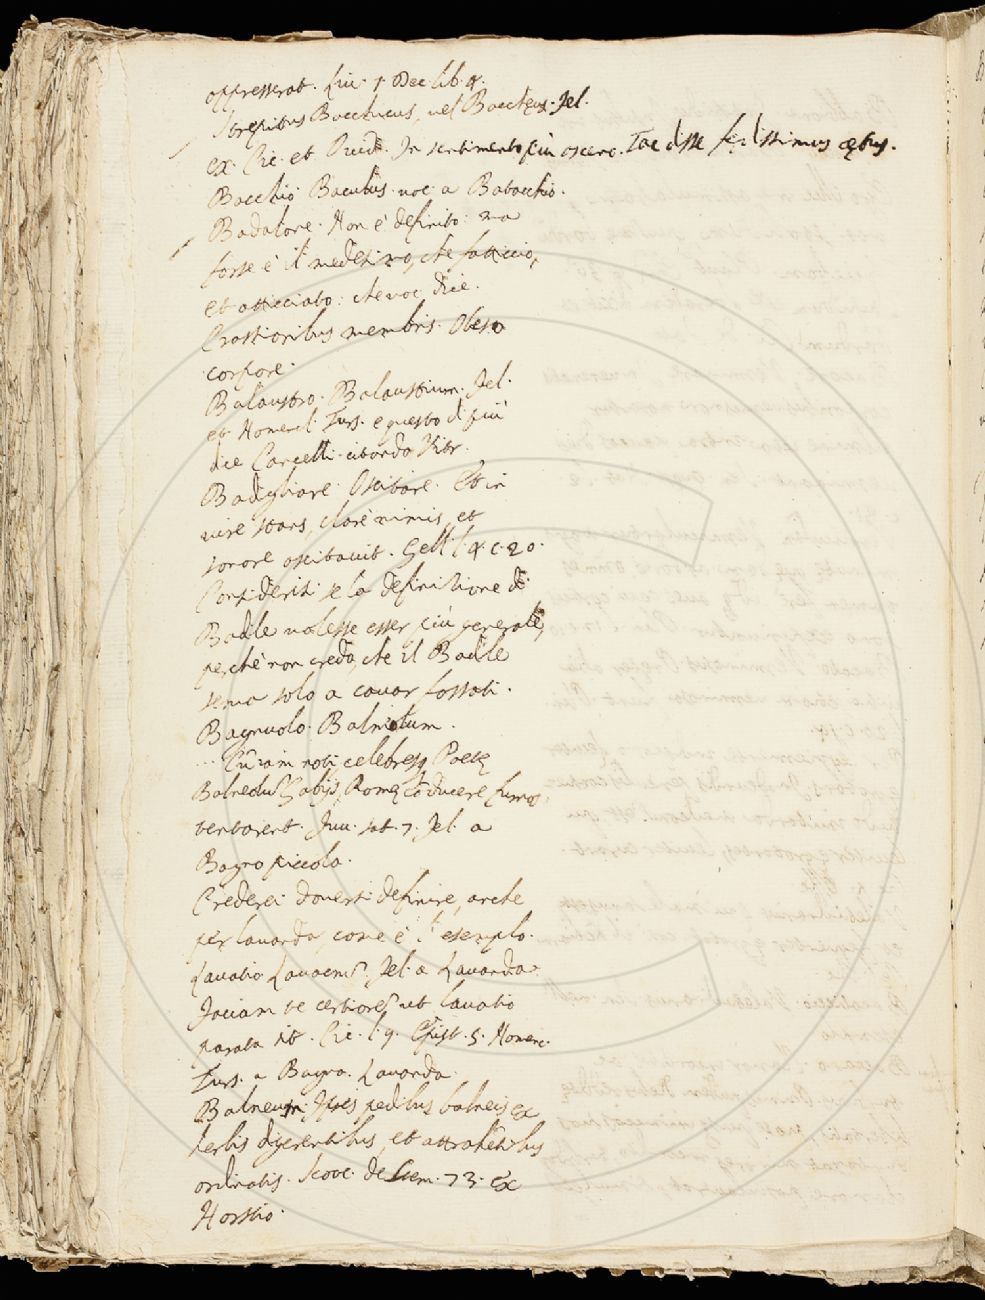 oppresserat. Liu. 1. Dec. lib. 4.
Strepitus Bacchicus, vel Baccheus. Jel.
ex Cic. et Ouid. In sentimento più osceno. Tac. disse fędissimus cętus.
Bacchio. Baculus. uoc. a Batacchio.
Badalone. Non è definito: ma
forse è il medesimo, che fatticcio,
et atticciato: che uoc. dice.
Crassioribus membris. Obeso
corpore.
Balaustro. Balaustium. Jel.
et Homeni. Turs. e questo di più
dice Cancelli. Vitr.
Badigliare. Oscitare. Et in
uire stans, clare nimis, et
sonore oscitauit. Gell. l. 4. c. 20.
Consideristi se la definizione di
Badile uolesse esser più generale,
perche non credo, che il Badile
serua solo a cauar fossati.
Bagnuolo. Balneolum.
... Cū iam noti celebresq Poetę
Balneolū Gabijs, Romę cōducere furnos
tentarent. Juu. sat. 7. Jel. a
Bagno piccolo.
Crederei douersi definire, anche
per lauanda, come è il pº esempio.
Lauatio. Lauacrū. Jel. a Lauanda.
Faciam te certiorē ut lauatio
parata sit. Cic. l. 9. Epist. 5. Homeni.
Turs. a Bagno. Lauanda.
Balneum. pedibus balneis ex
herbis digerentibus, et attrahētibus
ordinatis. de 73. ex
Horstio.